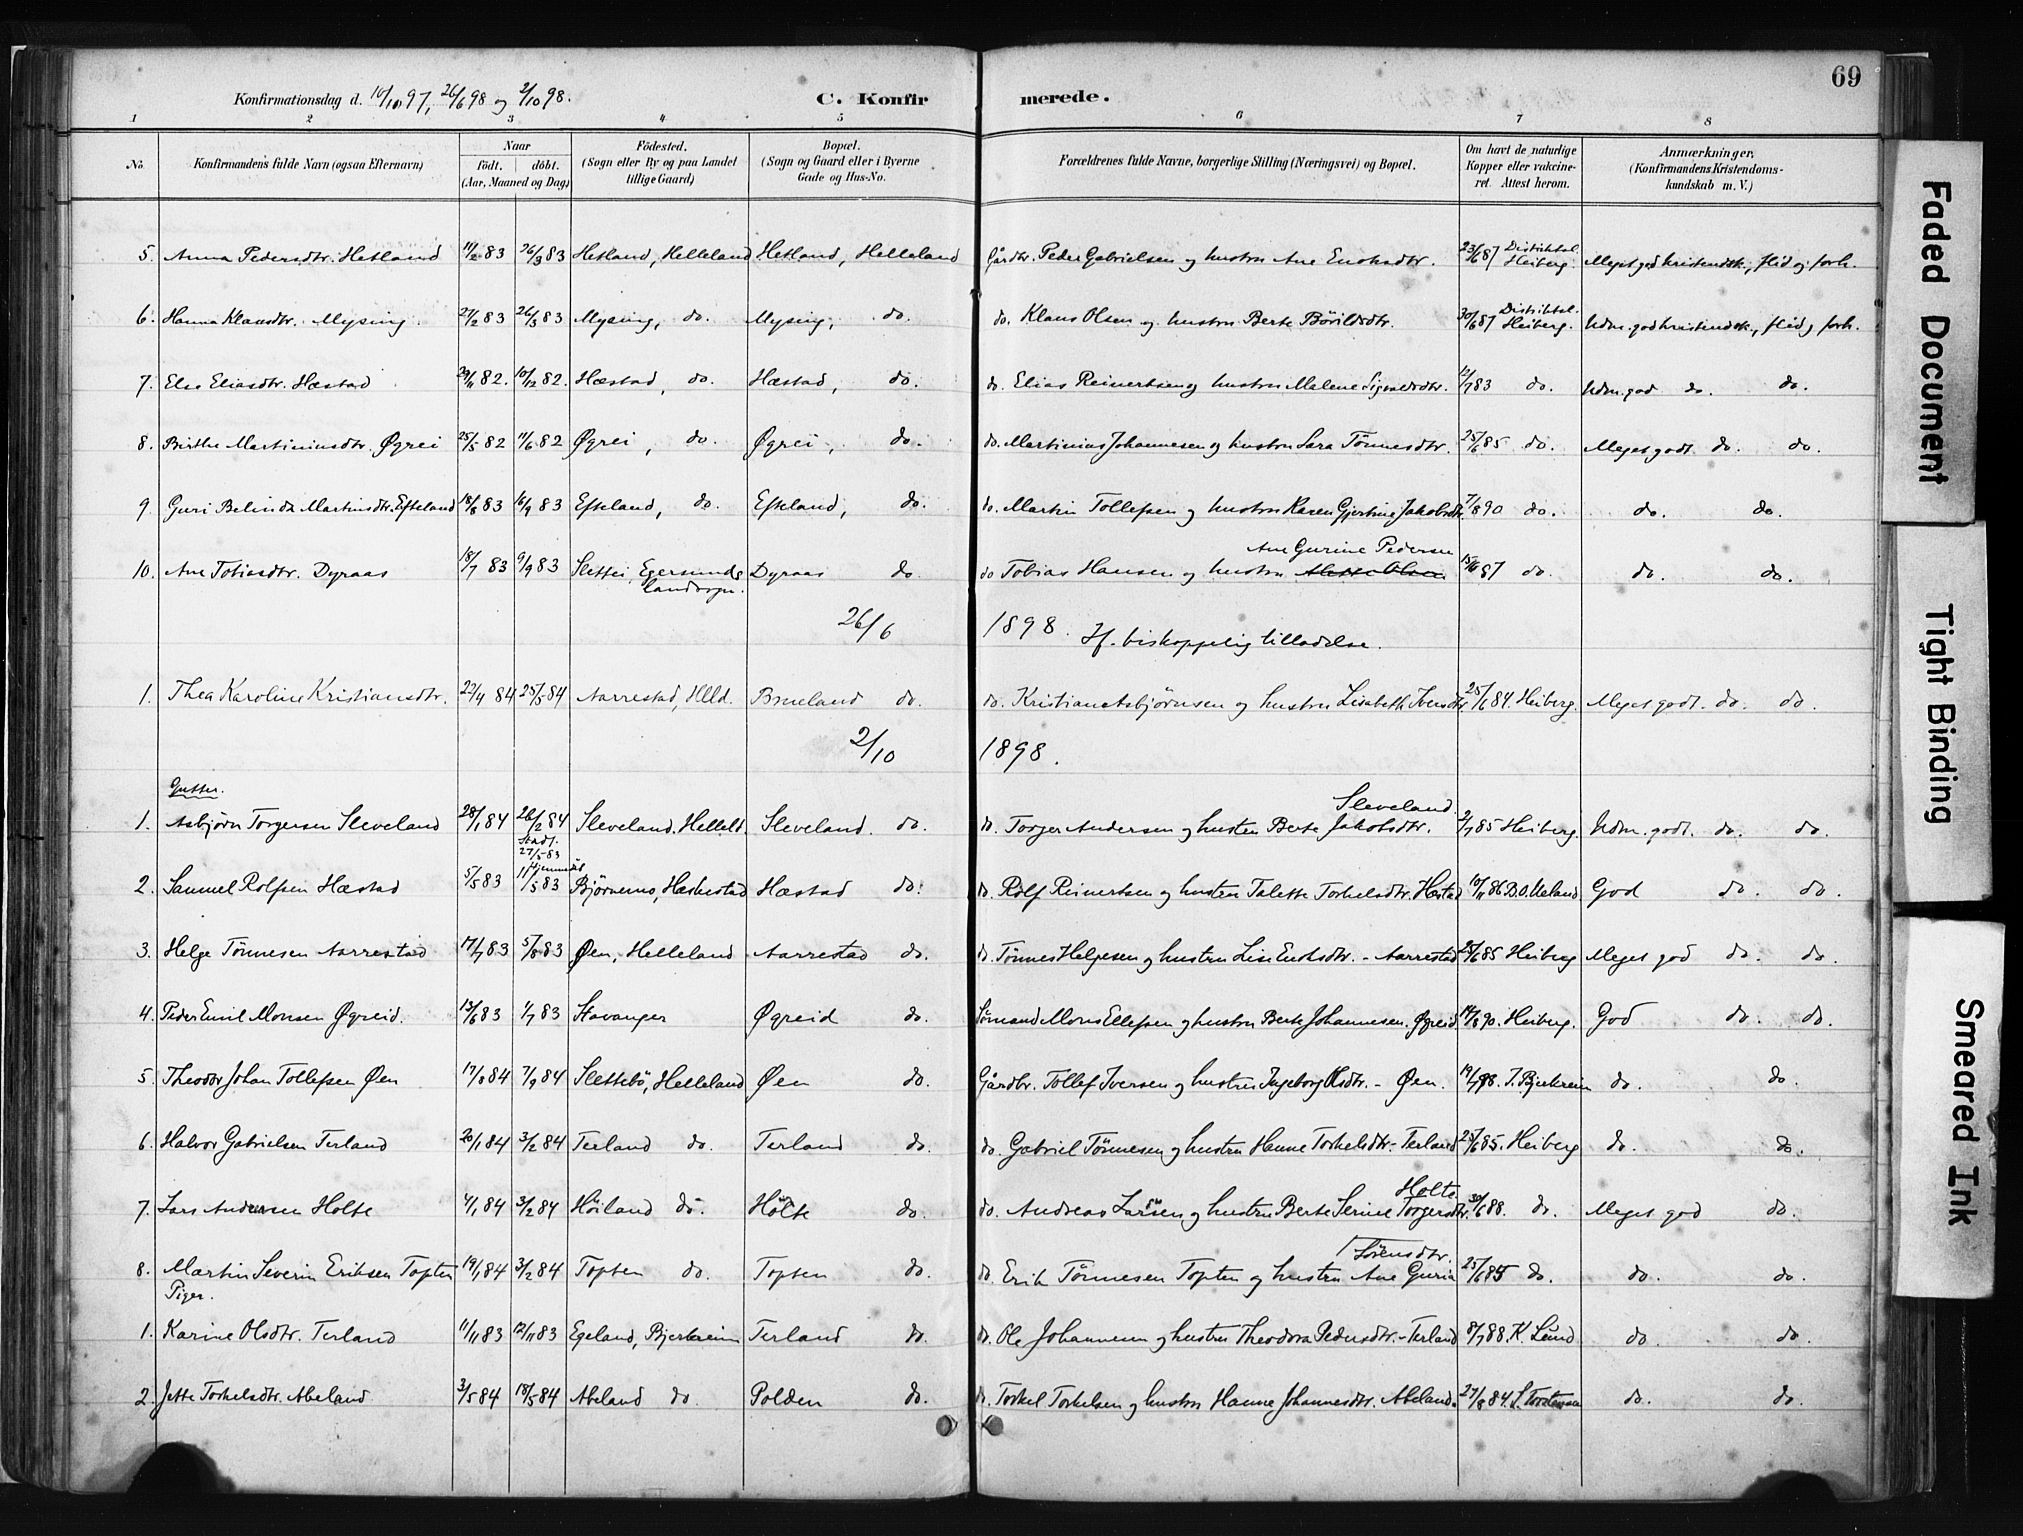 69
Konfirmationsdag d. 10/10 97, 26/6 98 og 2/10 98.
C. Konfirmerede.
1 2 3 4 5 6 7 8
No. Konfirmandens fulde Navn (ogsaa Efternavn) Naar født. døbt. (Aar, Maaned og Dag) Fødested. (Sogn eller By og paa Landet tillige Gaard) Bopæl. (Sogn og Gaard eller i Byerne Gade og Hus-No. Forældrenes fulde Navne, borgerlige Stilling (Næringsvei) og Bopæl. Om havt de naturlige Kopper eller vakcineret. Attest herom. Anmærkninger, (Konfirmandens Kristendomskundskab m. V.)
5. Anna Pedersdtr. Hetland 11/2 83 26/3 83 Hetland, Helleland Hetland, Helleland Gårdbr. Peder Gabrielsen og hustru Ane Enoksdtr. 23/6 87 Distriktsl. Heiberg. Meget god kristendsk., flid og forh.
6. Hanna Klausdtr. Mysing. 27/2 83 26/3 83 Mysing, do. Mysing, do. do. Klaus Olsen og hustru Berte Bøvildsdtr. 30/6 87 Distriktsl. Heiberg. Udm. god kristendsk., flid og forh.
7. Else Eliasdtr. Hæstad 29/11 82. 10/12 82. Hæstad, do. Hæstad, do. do. Elias Reinertsen og hustru Malene Sigvaldsdtr. 12/7 83 do. Udm. god do. do.
8. Birthe Martiniusdtr. Øgrei 25/5 82 11/6 82 Øgrei, do. Øgrei, do. do. Martinius Johannesen og hustru Sara Tønnesdtr. 25/6 85 do. Meget godt. do. do.
9 Guri Belinda Martinsdtr. Efteland 18/8 83 16/9 83 Efteland, do. Efteland, do. do. Martin Tollefsen og hustru Karen Gjertine Jakobsdtr. 7/8 90 do. do. do.
10. Ane Tobiasdtr. Dyraas 18/7 83 9/9 83 Slettei, Egersunds Landsogn. Dyraas do. do Tobias Hansen og hustru Ane Gurine Pedersen 87 do. do. do.
26/6 1898. Jf. biskoppelig tilladelse.
1. Thea Karoline Kristiansdtr. 22/4 84 25/5 84 Aarrestad, Hlld. Brueland do. do. Kristian Asbjørnsen og hustru Lisabeth Iversdtr 25/6 84. Heiberg. Meget godt. do. do.
2/10 1898.
Gutter.
1. Asbjørn Torgersen Sleveland 28/1 84 26/2 84 Sleveland, Helleld. Sleveland. do. do. Torger Andersen og hustru Berte Jakobsdtr. Sleveland 2/7 85 Heiberg. Udm. godt. do. do.
2. Samuel Rolfsen Hæstad 5/5 83 Stadf. 27/5 83 Hjemmedøl 11/5 83 Bjørnemo, Heskestad Hæstad do. do. Rolf Reinertsen og hustru Talette Torkelsdtr. Hæstad 10/11 86 B. O. Ueland God do. do.
3. Helge Tønnesen Aarrestad 17/7 83 5/8 83 Øen, Helleland Aarrestad do. do. Tønnes Helgesen og hustru Lise Enoksdtr. - Aarrestad 25/6 85 Heiberg Meget god do. do.
4. Peder Emil Monsen Øgreid. 13/6 83 1/7 83 Stavanger Øgreid do. Sømand Mons Ellefsen og hustru Berte Johannesen. Øgreid 14/8 90. Heiberg. God do. do.
5. Theodor Johan Tollefsen Øen 17/8 84 7/9 84 Slettebø, Helleland Øen do. Gårdbr. Tollef Iversen og hustru Ingeborg Olsdtr. - Øen. 19/7 98. T. Bjerkreim do. do.
6. Halvor Gabrielsen Terland 20/1 84 3/2 84 Terland do. Terland do. do. Gabriel Tønnesen og hustru Hanne Torkelsdtr. - Terland 25/6 85. Heiberg do. do.
7. Lars Andersen Holte 4/1 84 3/2 84 Høiland do. Holte do. do. Andreas Larsen og hustru Berte Serine Torgersdtr. Holte 30/6 88. do. Meget god do.
8. Martin Severin Eriksen Topten 19/1 84 3/2 84 Topten do. Topten do. do. Erik Tønnesen Topten og hustru Ane Guria Sørensdtr. 25/6 85 do. do. do.
Piger.
1. Karine Olsdtr. Terland 11/11 83 12/11 83 Egeland, Bjerkreim Terland do. do. Ole Johannesen og hustru Theodora Pedersdtr. - Terland 8/7 88. K. Lund do. do.
2. Jette Torkelsdtr. Abeland 3/5 84 18/5 84 Abeland do Polden do. do. Torkel Torkelsen og hustru Hanne Johannesdtr. Abeland. 27/8 84. do. do.
Faded Document
Tight Binding
Smeared Ink